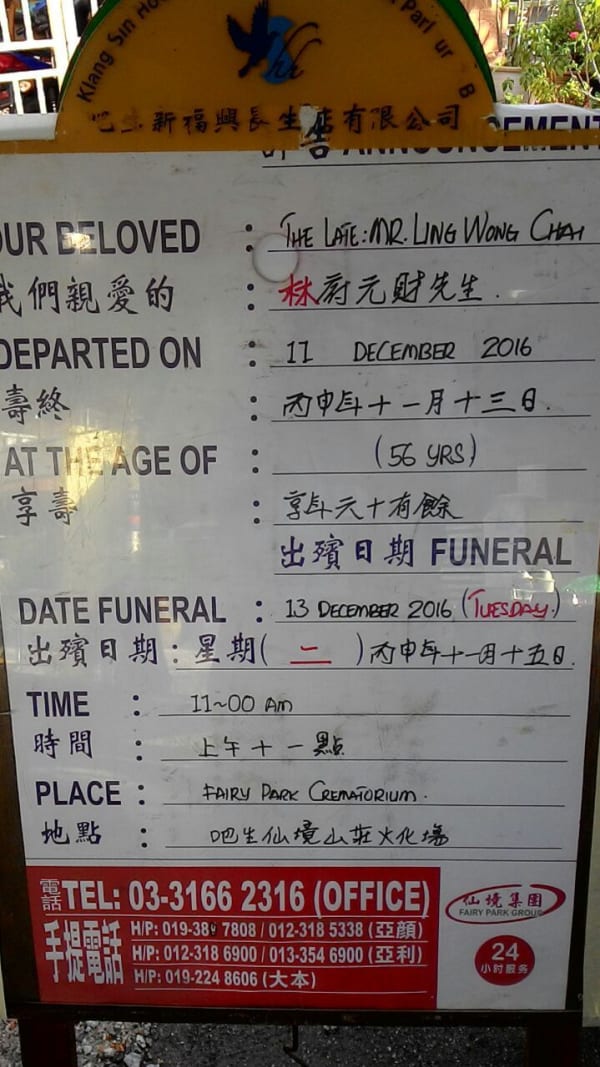 Klang Sin Ho Parl ur B
巴生新福興長生店有限公司
訃告 ANNOUNCEMENT
OUR BELOVED : THE LATE: MR. LING WONG CHAI
我們親愛的 : 林府元財先生.
DEPARTED ON : 11 DECEMBER 2016
壽終 : 丙申年十一月十三日.
AT THE AGE OF : (56 YRS)
享壽 : 享年六十有餘
出殯日期 FUNERAL
DATE FUNERAL : 13 DECEMBER 2016 (TUESDAY.)
出殯日期 : 星期( 二 ) 丙申年十一月十五日.
TIME : 11~00 AM
時間 : 上午十一點
PLACE : FAIRY PARK CREMATORIUM.
地點 : 吧生仙境山莊火化場
電話 TEL: 03-3166 2316 (OFFICE)
手提電話 H/P: 019-38 7808 / 012-318 5338 (亞顏)
H/P: 012-318 6900 / 013-354 6900 (亞利)
H/P: 019-224 8606 (大本)
仙境集團
FAIRY PARK GROUP
24
小时服务